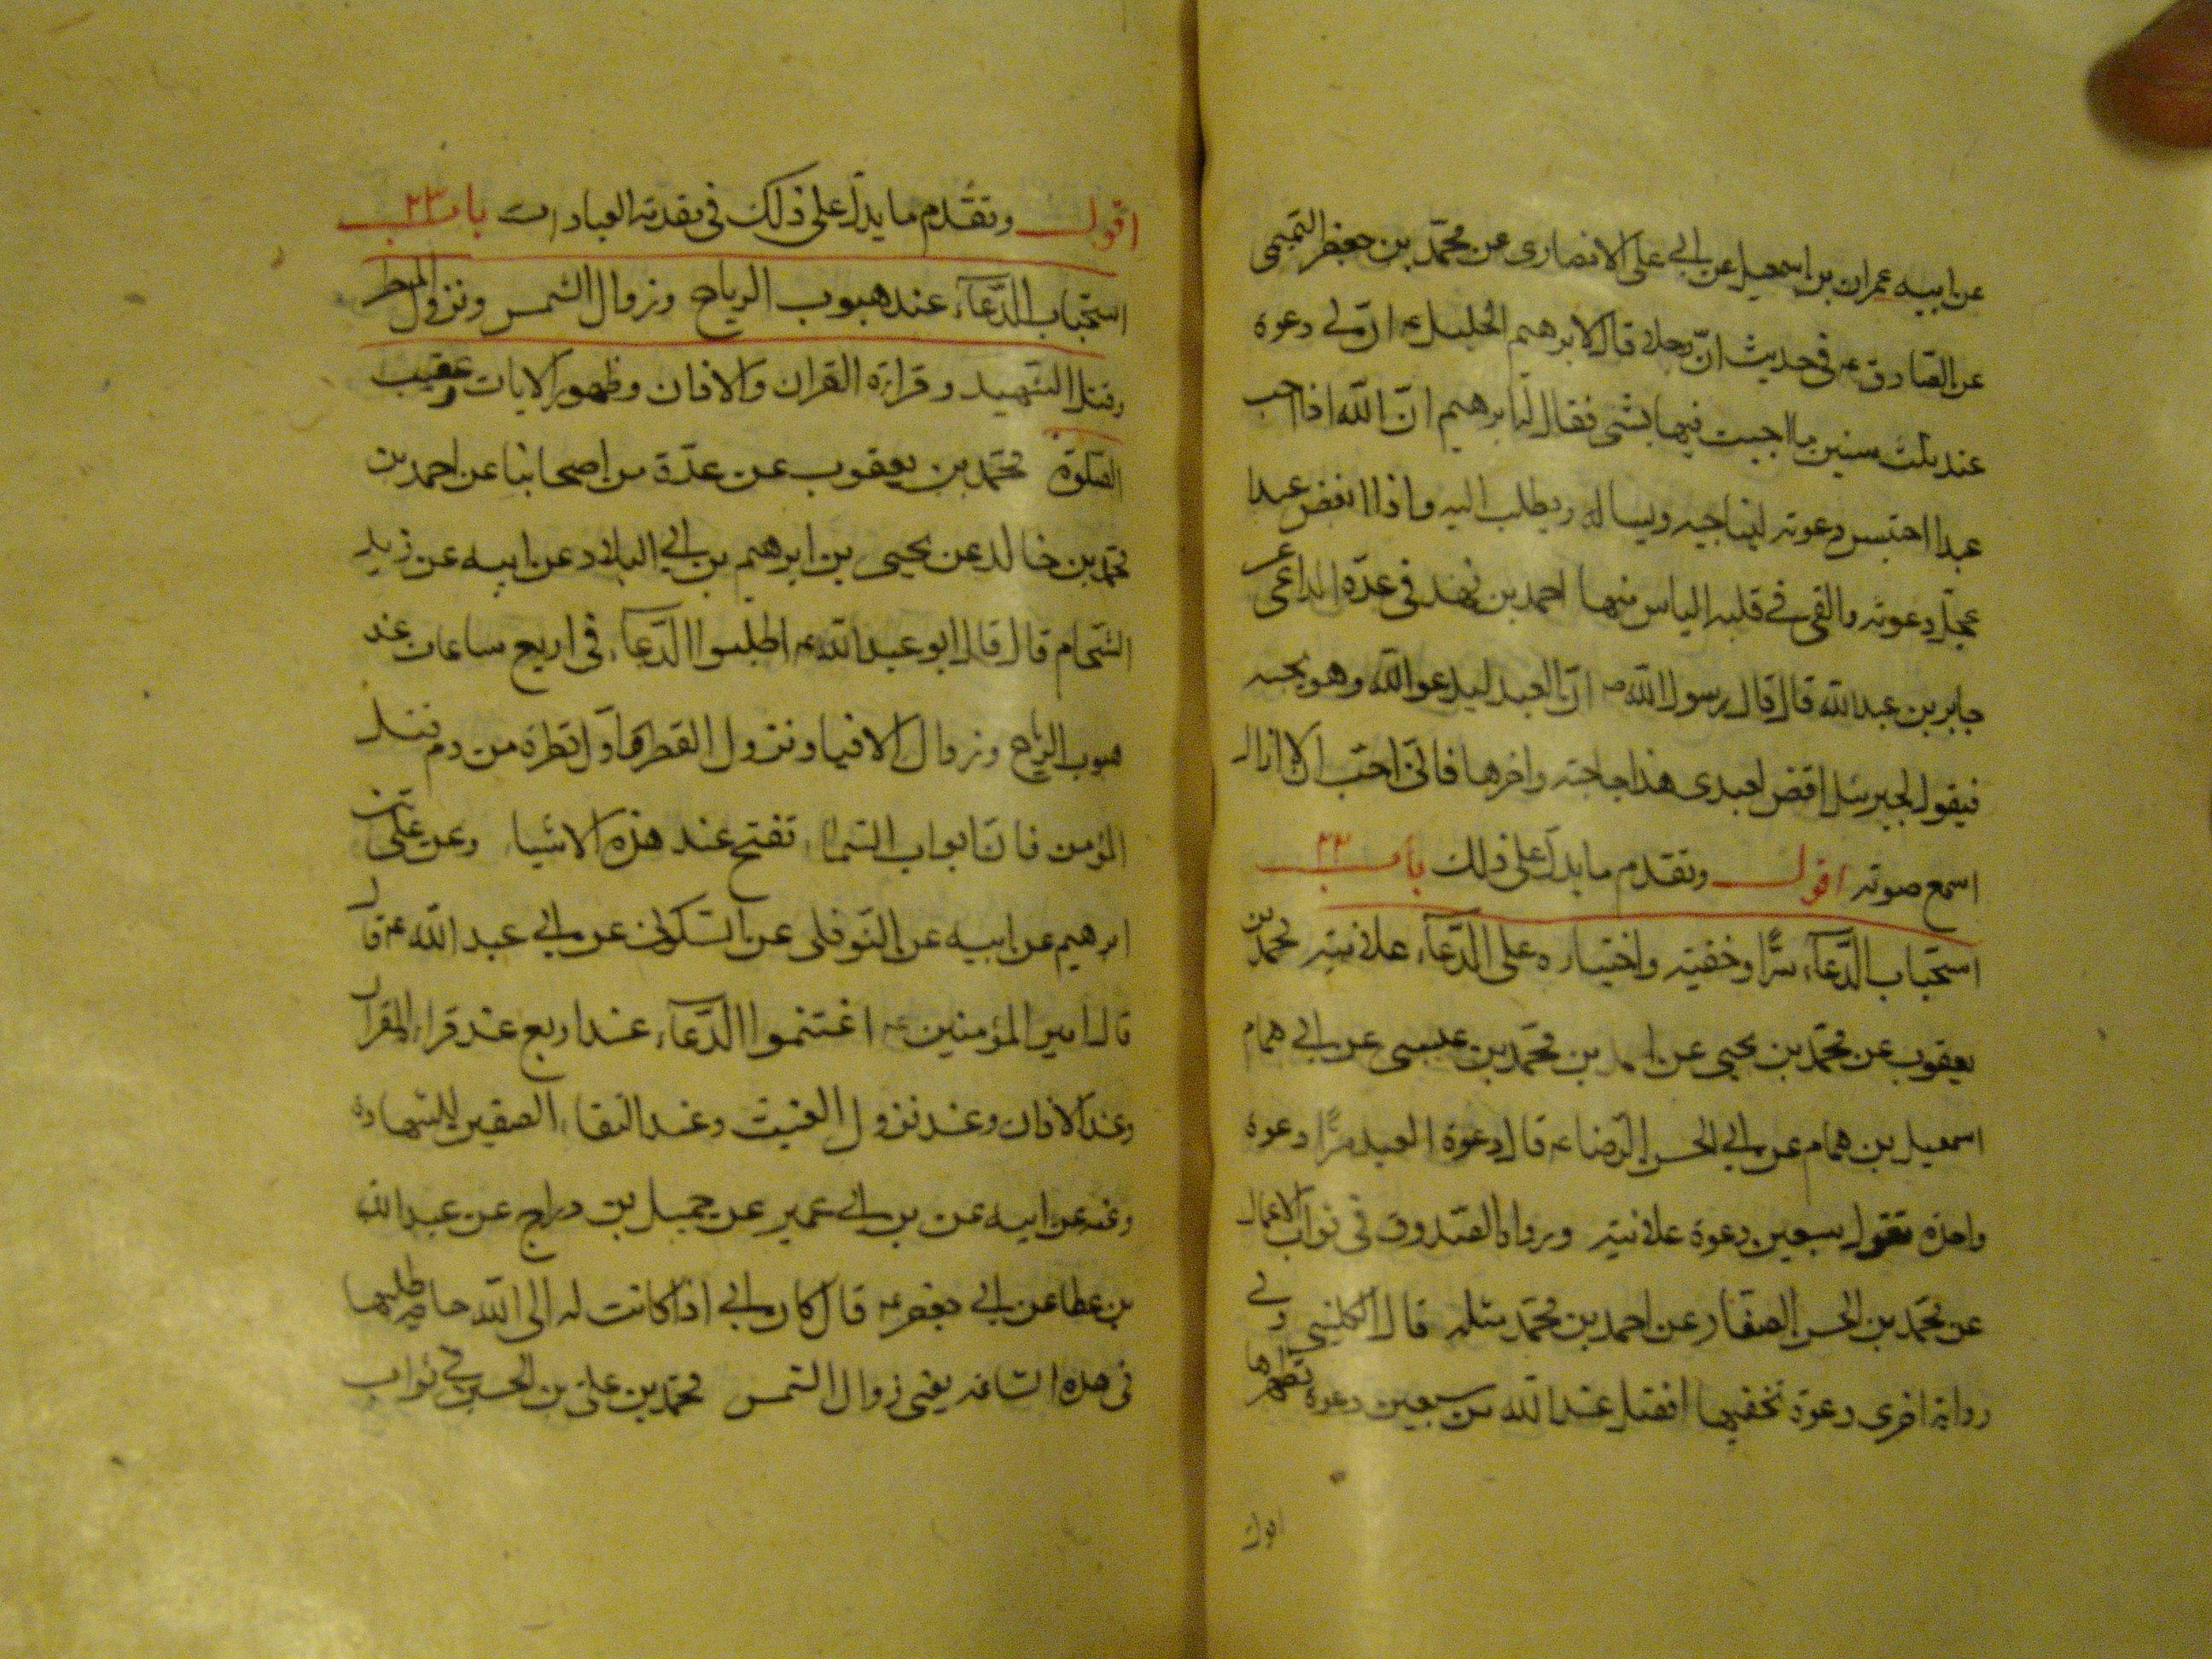 عن ابيه عمران بن اسمعيل عن ابي علي الانصاري عن محمد بن جعفر التميمي
عن الصادق ع في حديث ان رجلا قال لابرهيم الخليل ع ان لي دعوة
عند ثلث سنين ما اجبت فيها بشي فقال له ابرهيم ان الله اذا احب
عبدا احتبس دعوته ليناجيه ويساله ويطلب اليه واذا ابغض عبدا
عجل دعوته والقى في قلبه الياس منها احمد بن فهد في عدة الداعي عن
جابر بن عبد الله قال قال رسول الله ص ان العبد ليدعو الله وهو يحبه
فيقول لجبرئيل اقض لعبدي هذا حاجته واخرها فاني احب ان لا ازال
اسمع صوته اقول وتقدم ما يدل على ذلك باب ٢٢
استحباب الدعاء سرا وخفية واختياره على الدعاء علانية محمد بن
يعقوب عن محمد بن يحيى عن احمد بن محمد بن عيسى عن ابي همام
اسمعيل بن همام عن ابي الحسن الرضا ع قال دعوة العبد سرا دعوة
واحدة تعدل سبعين دعوة علانية ورواه الصدوق في ثواب الاعمال
عن محمد بن الحسن الصفار عن احمد بن محمد مثله قال الكليني وفي
رواية اخرى دعوة تخفيها افضل عند الله من سبعين دعوة تظهرها
اقول
اقول وتقدم ما يدل على ذلك في مقدمة العبادات باب ٢٣
استحباب الدعاء عند هبوب الرياح وزوال الشمس ونزول المطر
وقتل الشهيد وقراءة القران والاذان وظهور الايات وعقيب
الصلوة محمد بن يعقوب عن عدة من اصحابنا عن احمد بن
محمد بن خالد عن يحيى بن ابرهيم بن ابي البلاد عن ابيه عن زيد
الشحام قال قال ابو عبد الله ع اطلبوا الدعاء في اربع ساعات عند
هبوب الرياح وزوال الافياء ونزول القطر واول قطرة من دم قتيل
المؤمن فان ابواب السماء تفتح عند هذه الاشياء وعن علي بن
ابرهيم عن ابيه عن النوفلي عن السكوني عن ابي عبد الله ع قال
قال امير المؤمنين ع اغتنموا الدعاء عند اربع عند قراءة القران
وعند الاذان وعند نزول الغيث وعند التقاء الصفين للشهادة
وعنه عن ابيه عن بن ابي عمير عن جميل بن دراج عن عبد الله
بن عطا عن ابي جعفر ع قال كان ابي اذا كانت له الى الله حاجة طلبها
في هذه الساعة يعني زوال الشمس محمد بن علي بن الحسين في ثواب